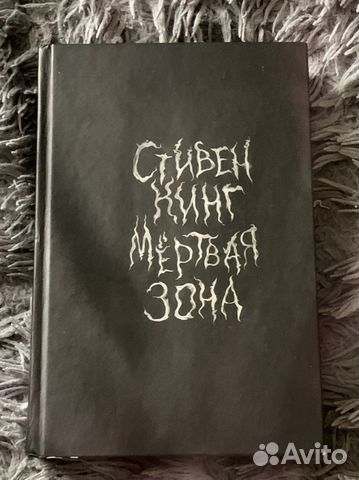 СТИВЕН
КИНГ
МЁРТВАЯ
ЗОНА
Avito